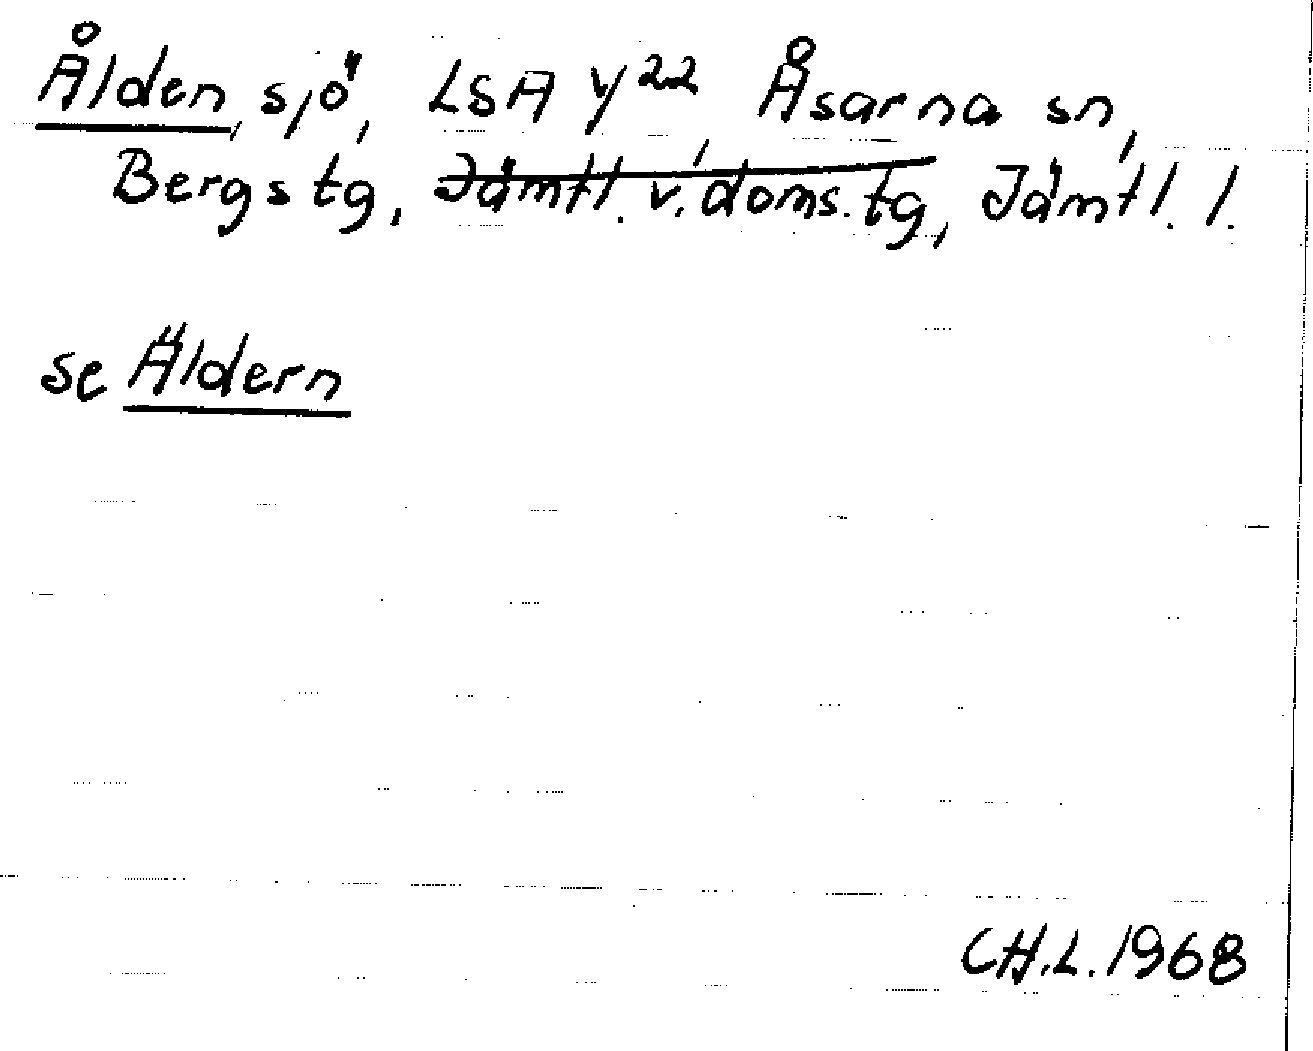 Ålden, sjö, LSA y22, Åsarna sn,
Bergs tg, Jämtl. v. doms. tg, Jämtl. l.
se Äldern
CH.L. 1968